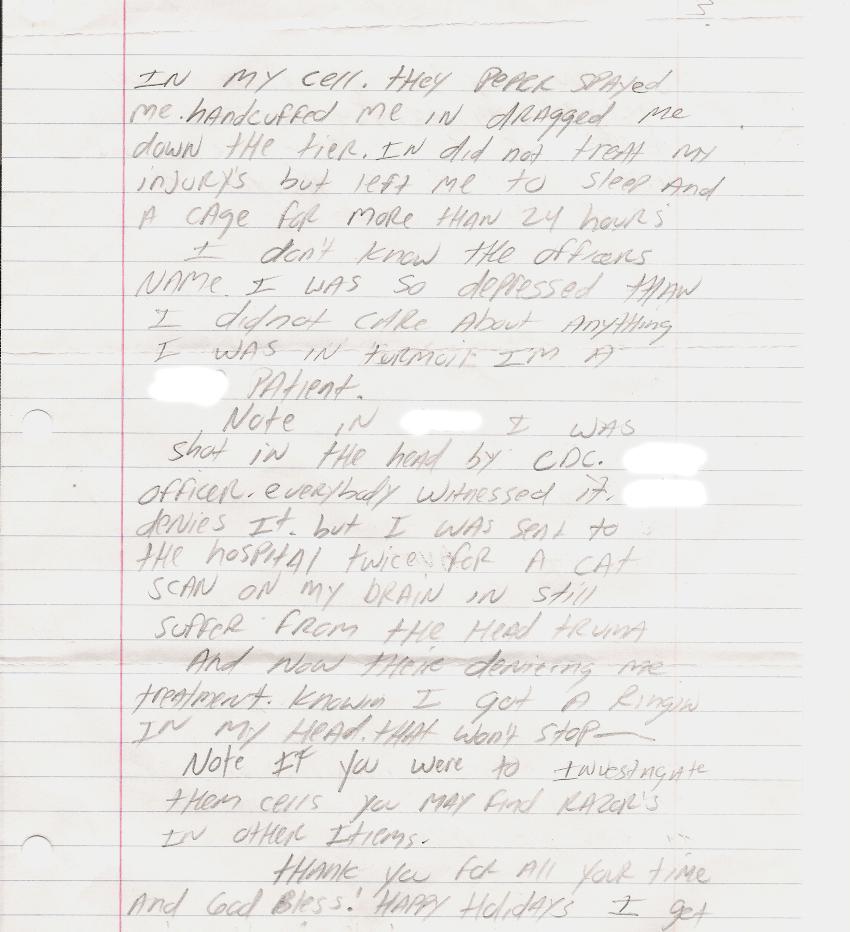 3.
IN my cell. they PEPER SPAyed
me. handcuffed me IN dRAgged me
down the tier. IN did not treat my
injury's but left me to sleep And
A cAge for more than 24 hours
I don't know the officers
NAME. I was so depressed than
I didnot CARe About Anything
I was in turmoil I'm A
PAtient.
Note IN I was
shot in the head by CDC.
officer. everybody witnessed it.
denies It. but I was sent to
the hospital twice for A CAT
SCAN ON my BRAIN IN still
suffer from the Head truma
And now their deniering me
treatment. Knowin I got A Ringin
IN my Head. that won't stop—
Note If you were to Investingate
them cells you may find RAzor's
IN other Itiems.
thank you for All your time
And God Bless! Happy Holidays I get